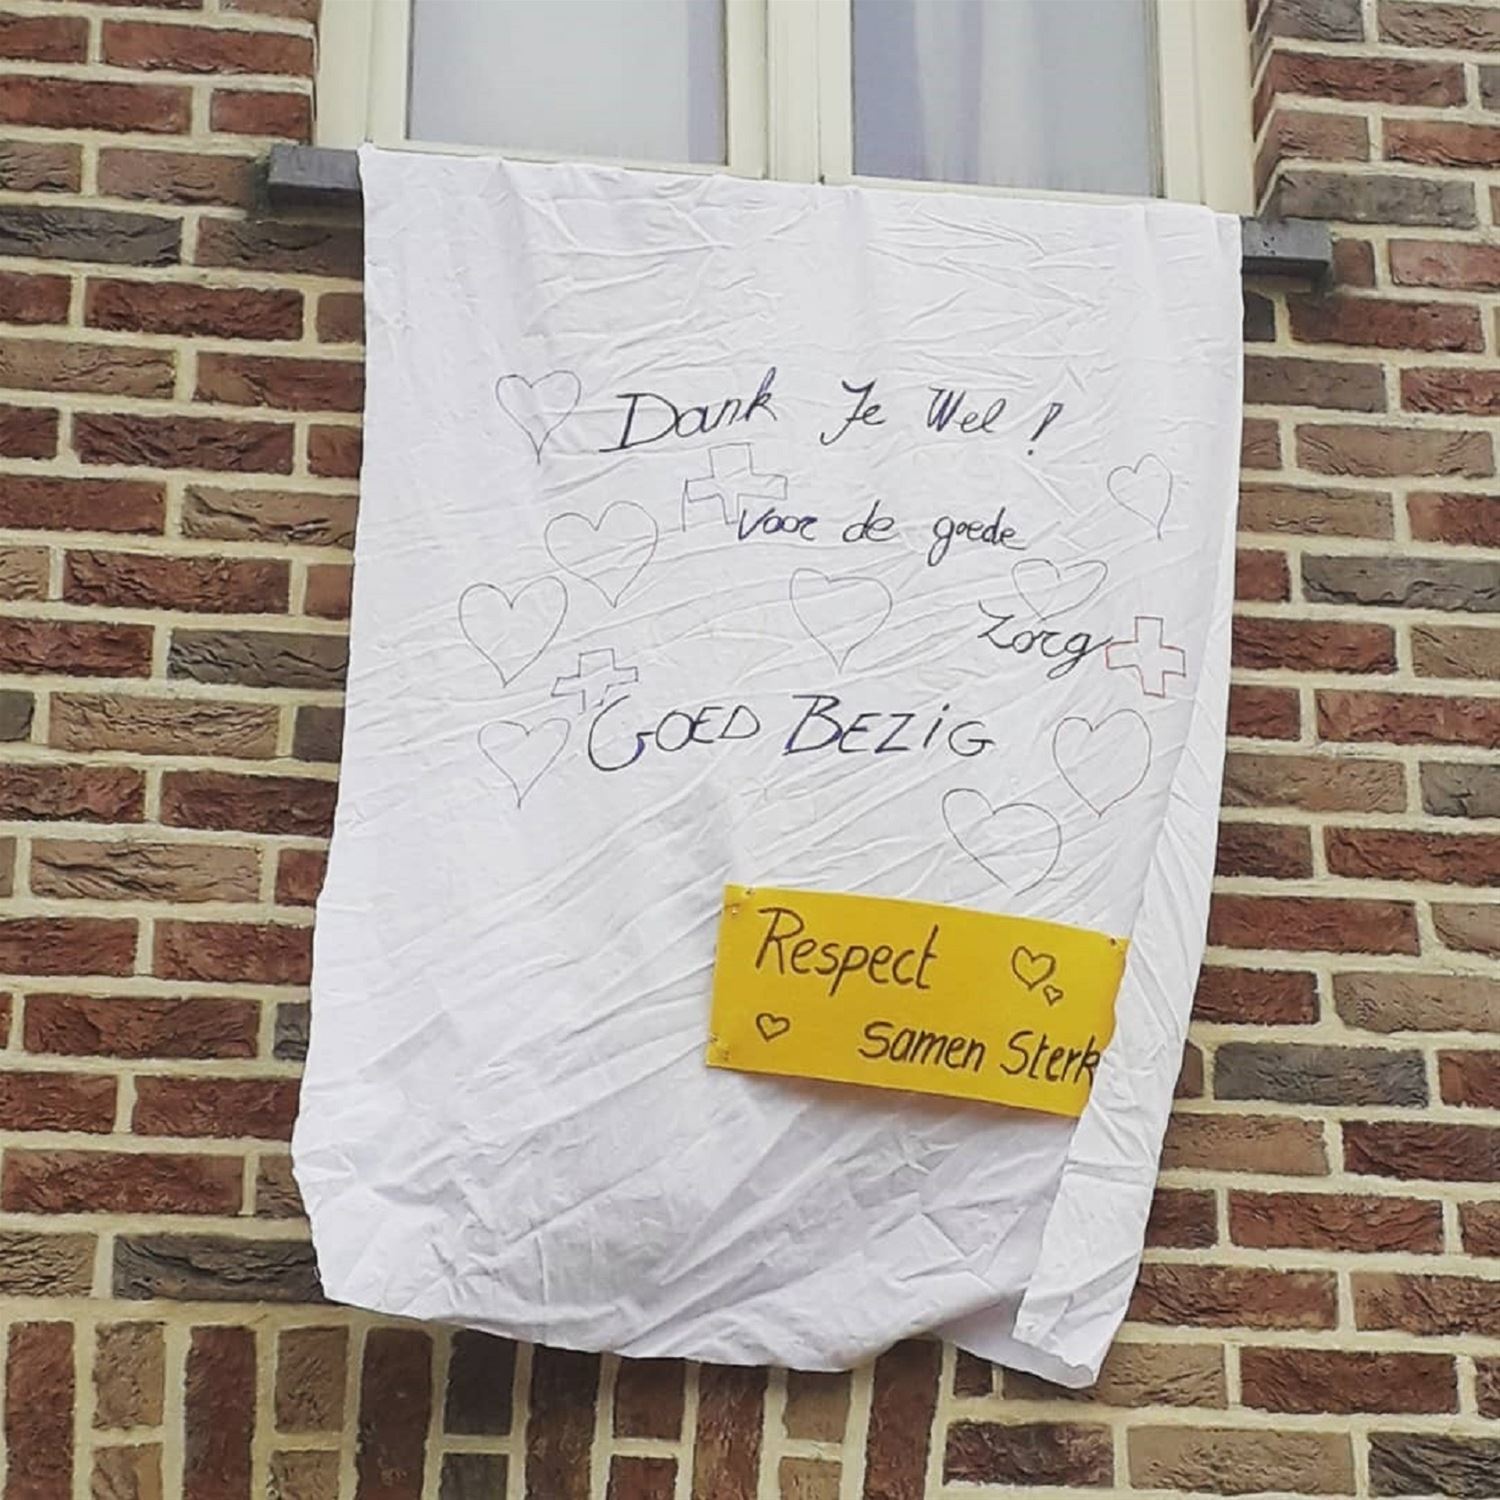 Dank Je Wel !
voor de goede
zorg
GOED BEZIG
Respect
Samen Sterk